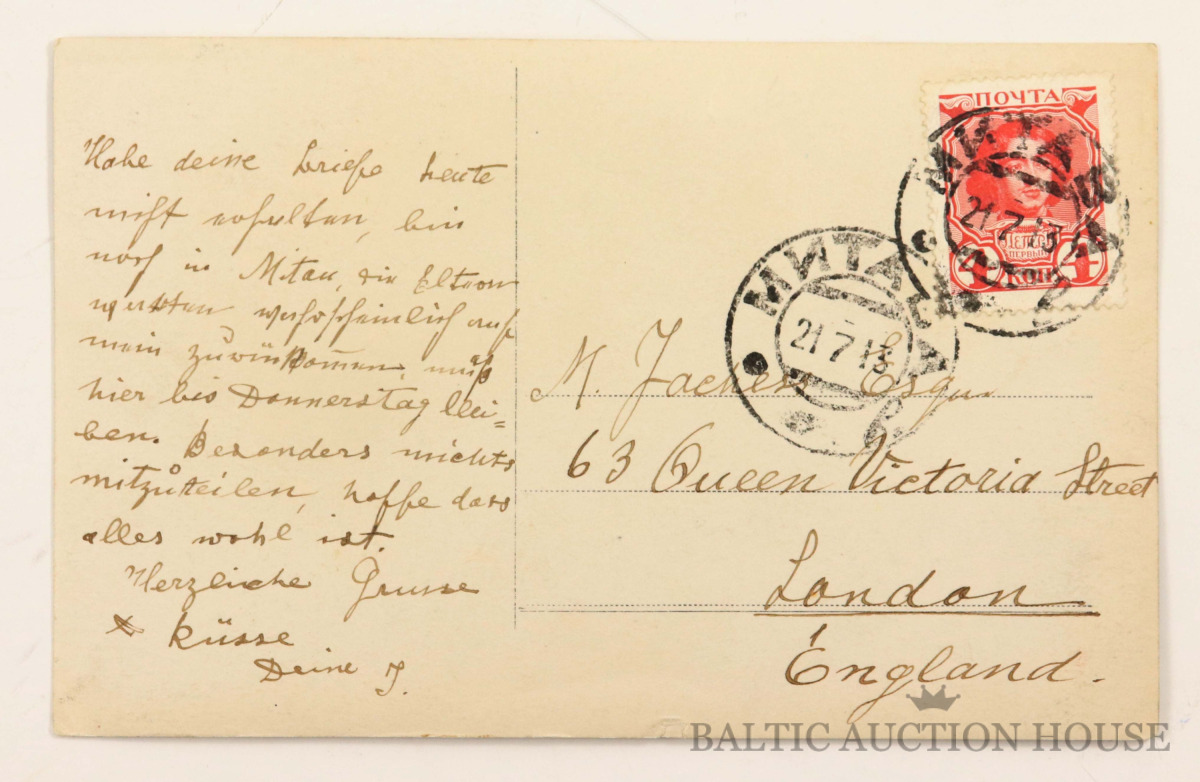 Habe deine briefe heute
nicht erhalten, bin
noch in Mitau die Eltern
werden wahrscheinlich auf
mein zurückkommen, muß
hier bis Donnerstag blei=
ben. Besonders nichts
mitzuteilen, hoffe dass
alles wohl ist.
Herzliche Grusse
& küsse
Deine J.
ПОЧТА
ПЕТРЪ
ПЕРВЫЙ
4 КОП 4
МИТАВА
21 7 13
МИТАВА
21 7 13
M. Esqu.
63 Queen Victoria Street
London
England.
BALTIC AUCTION HOUSE